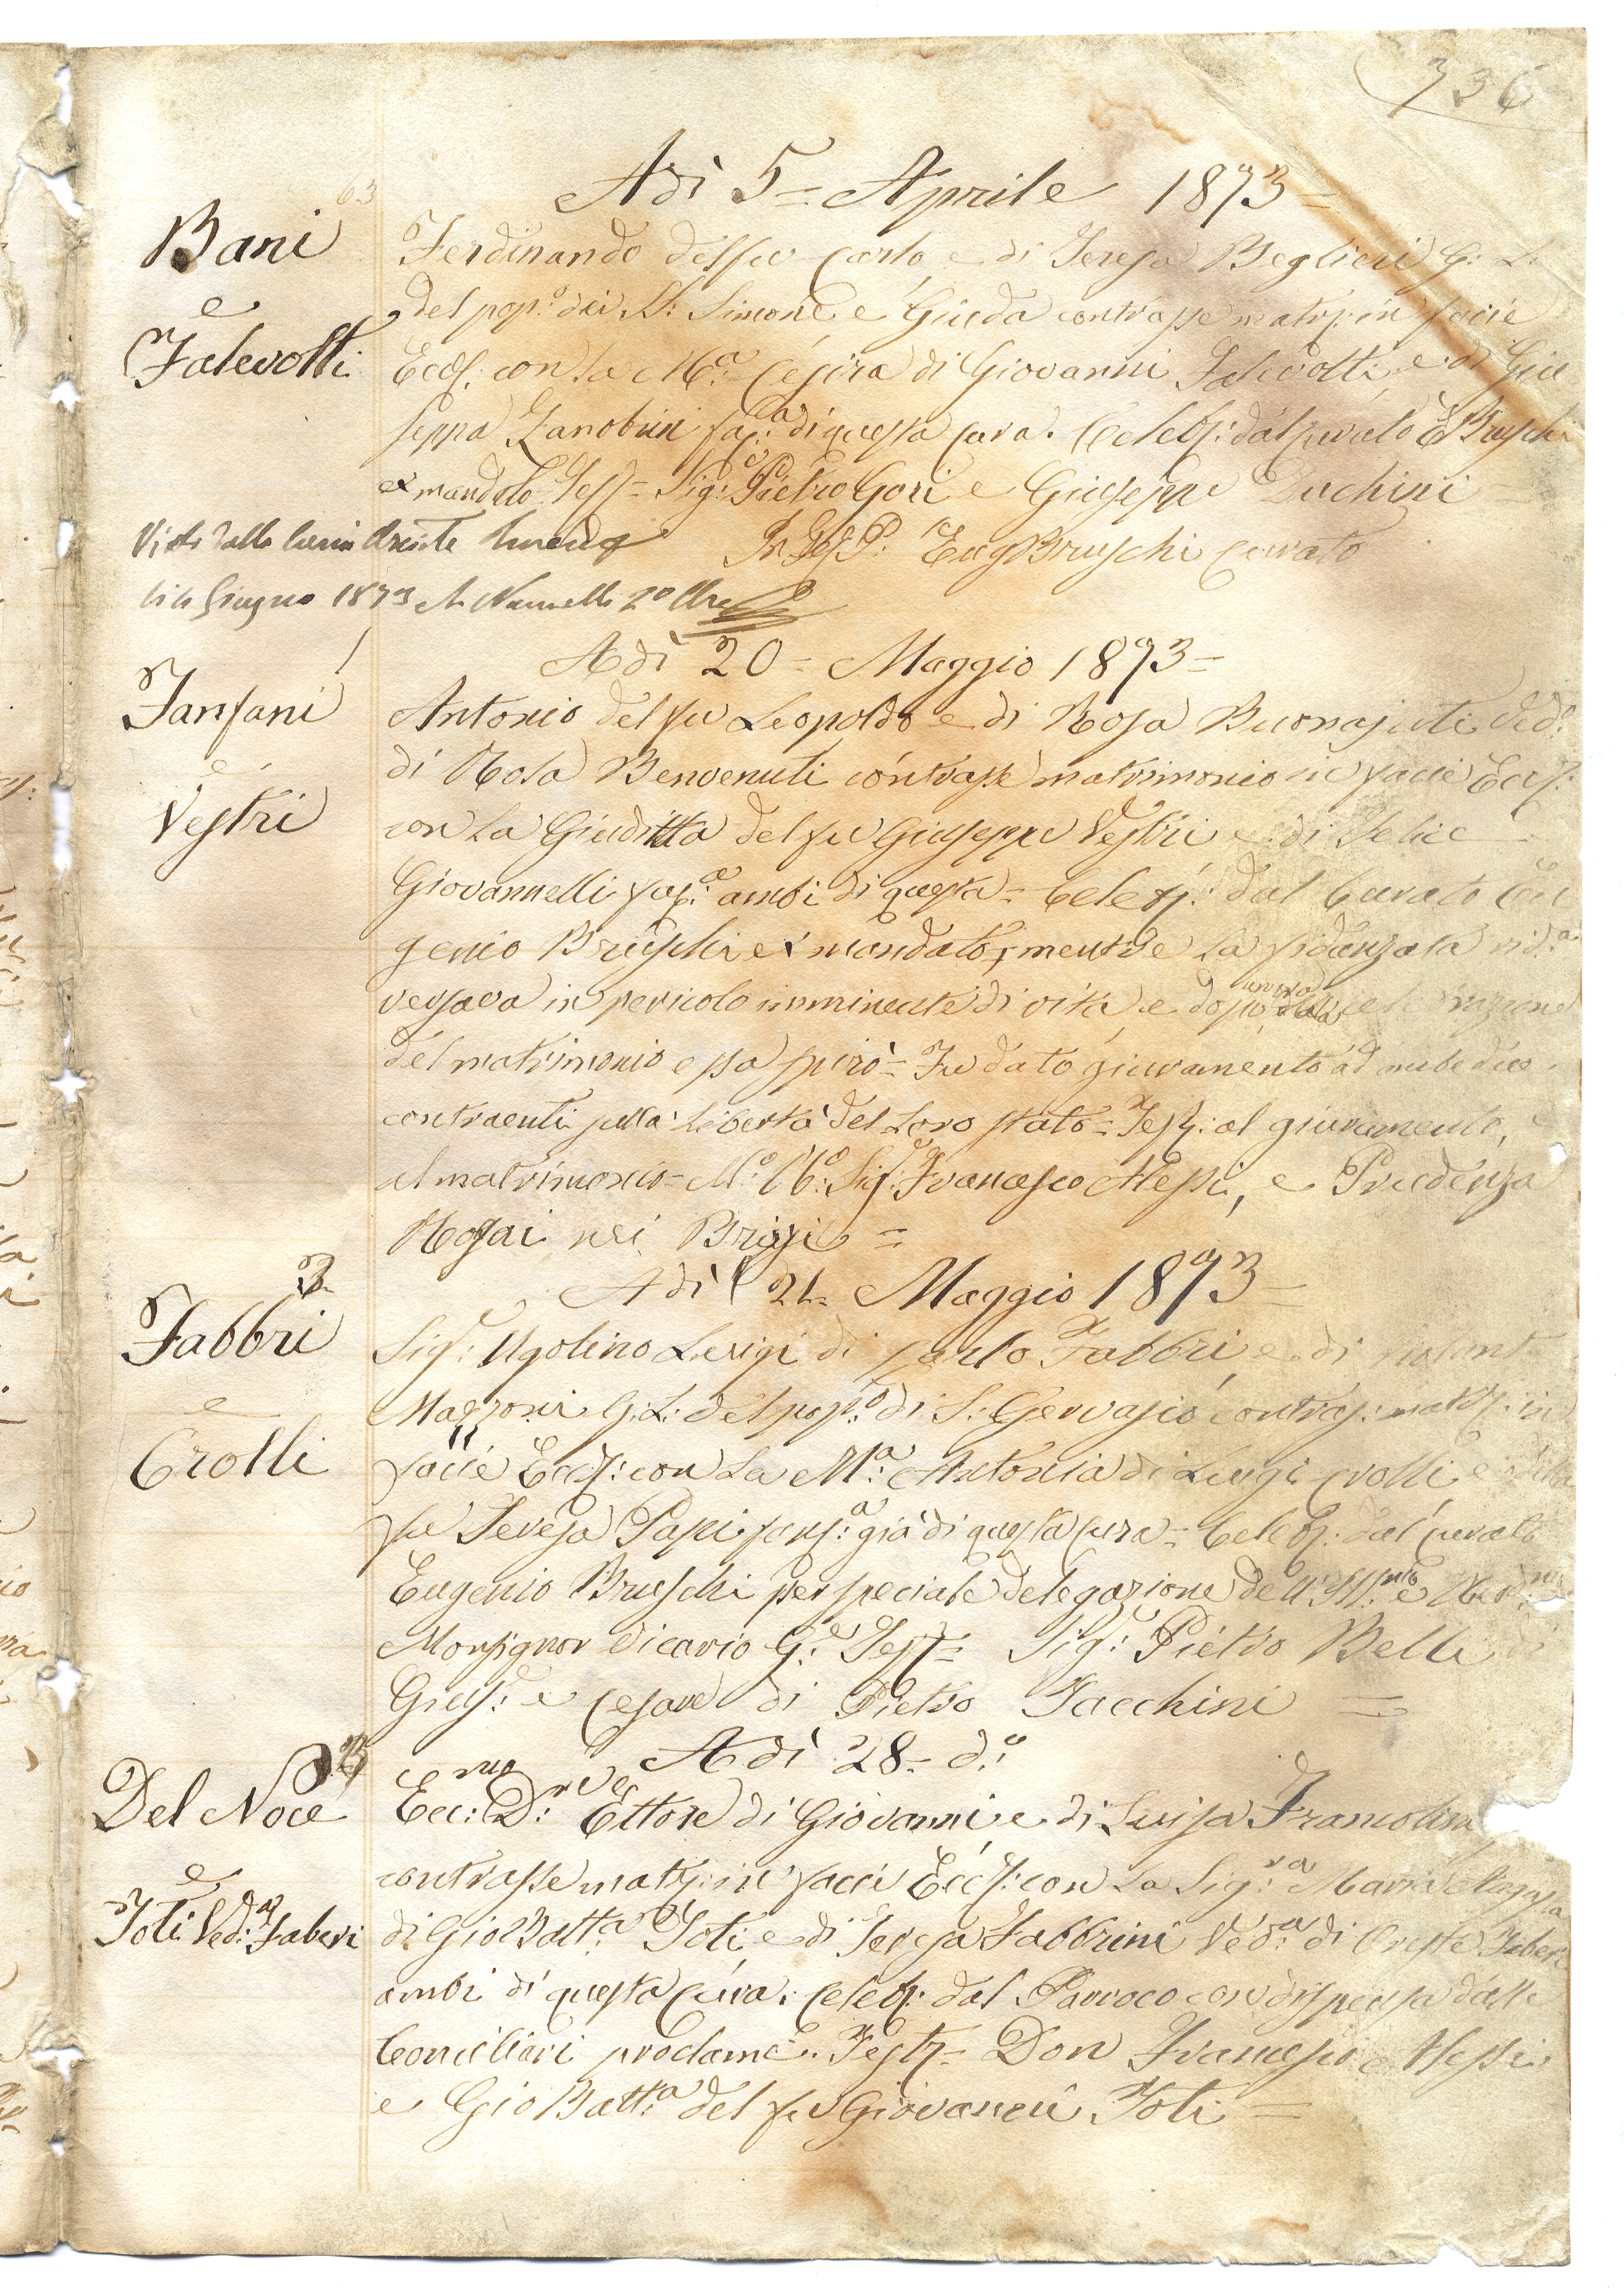 736
Adì 5 = Aprile 1873 =
63
Bani
e
Falevolti
Ferdinando del fu Carlo e di Teresa Beglieri G: L:
del pop:º dei S: Simone e Giuda contrasse matr: in facie
Eccl: con la M:ª Cesira di Giovanni Falevolti e di Giu
seppa Zanobini fan:ª di questa Cura. Celeb: dal Curato E Bruschi
ex mandato Test = Sig:i Pietro Gori e Giuseppe Duchini =
In Fed P: Eug Bruschi Curato
Visto dalla Curia
li Giugno 1873
1
Adì 20 = Maggio 1873 =
Fanfani
e
Vestri
Antonio del fu Leopoldo e di Rosa Buonajuti Ved:º
di Rosa Benvenuti contrasse matrimonio in facie Eccl:
con la Giuditta del fu Giuseppe Vestri e di Felice
Giovannelli fan:ª ambi di questa = Celeb: dal Curato Eu
genio Bruschi ex mandato, mentre la fidanzata
versava in pericolo imminente di vita e dopo
del matrimonio essa spirò = Fu dato giuramento ad ambedue
contraenti sulla libertà del loro stato = Test: al giuramento, e
al matrimonio = M:º R:º Sig:r Francesco Alessi, e Prudenza
Rosai nei Brigi =
2
Adì 21 = Maggio 1873 =
Fabbri
e
Crolli
Sig:r Ugolino Luigi di Carlo Fabbri e di
Mazzoni G: L: del pop:º di S: Gervasio contras: matr: in
facie Eccl: con la M:ª Antonia di Luigi Crolli e della
fu Teresa Papi fan:ª già di questa Cura = Celeb: dal Curato
Eugenio Bruschi per speciale delegazione dell'Ill:mo e Rev:mo
Monsignor Vicario G:e Test = Sig:r Pietro Belli di
Gius:e e Cesare di Pietro Facchini =
3
Adì 28 = d:º
Del Noce
e
Foti Ved:ª Faberi
Ecc:mo D:r Ettore di Giovanni e di Luisa Francolini
contrasse matr: in facie Eccl: con la Sig:ra Maria
di Gio Batt:ª Foti e di Teresa Fabbrini Ved:ª di Oreste Faberi
ambi di questa Cura. Celeb: dal Parroco con dispensa dalle
Conciliari proclame. Test = Don Francesco Alessi
e Gio Batt:ª del fu Giovanni Foti =